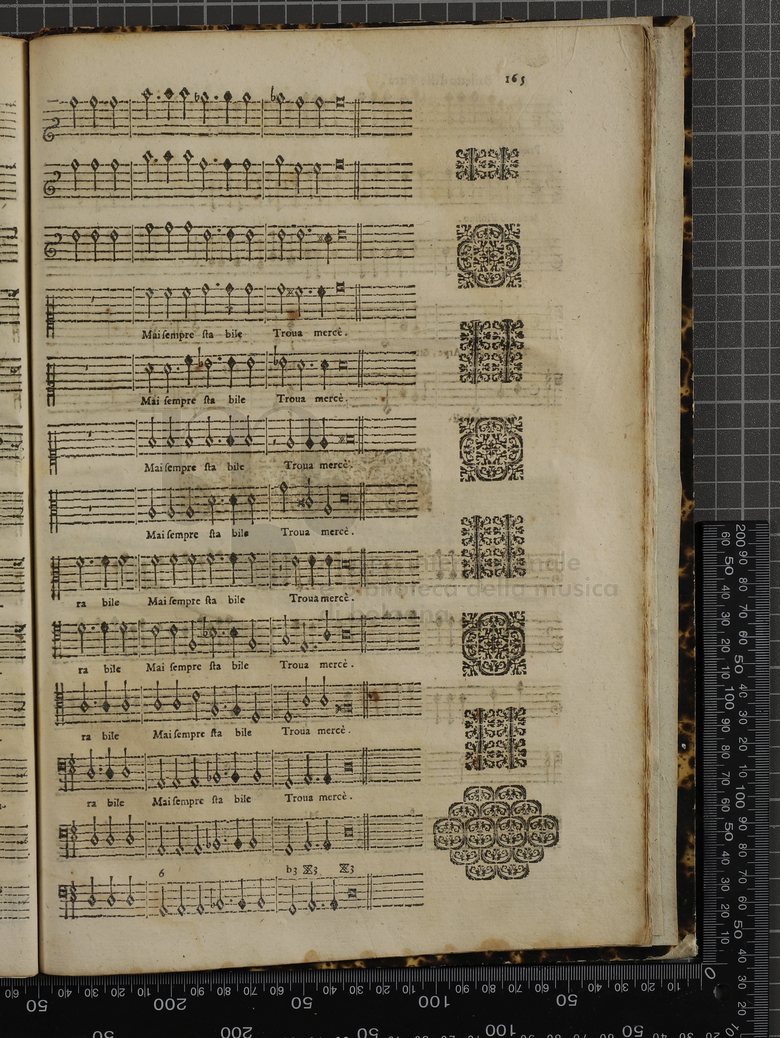 165
Mai sempre sta bile Troua mercè.
Mai sempre sta bile Troua mercè.
Mai sempre sta bile Troua mercè.
Mai sempre sta bile Troua mercè.
ra bile Mai sempre sta bile Troua mercè.
ra bile Mai sempre sta bile Troua mercè.
ra bile Mai sempre sta bile Troua mercè.
ra bile Mai sempre sta bile Troua mercè.
6 b3 X3 X3
biblioteca della musica